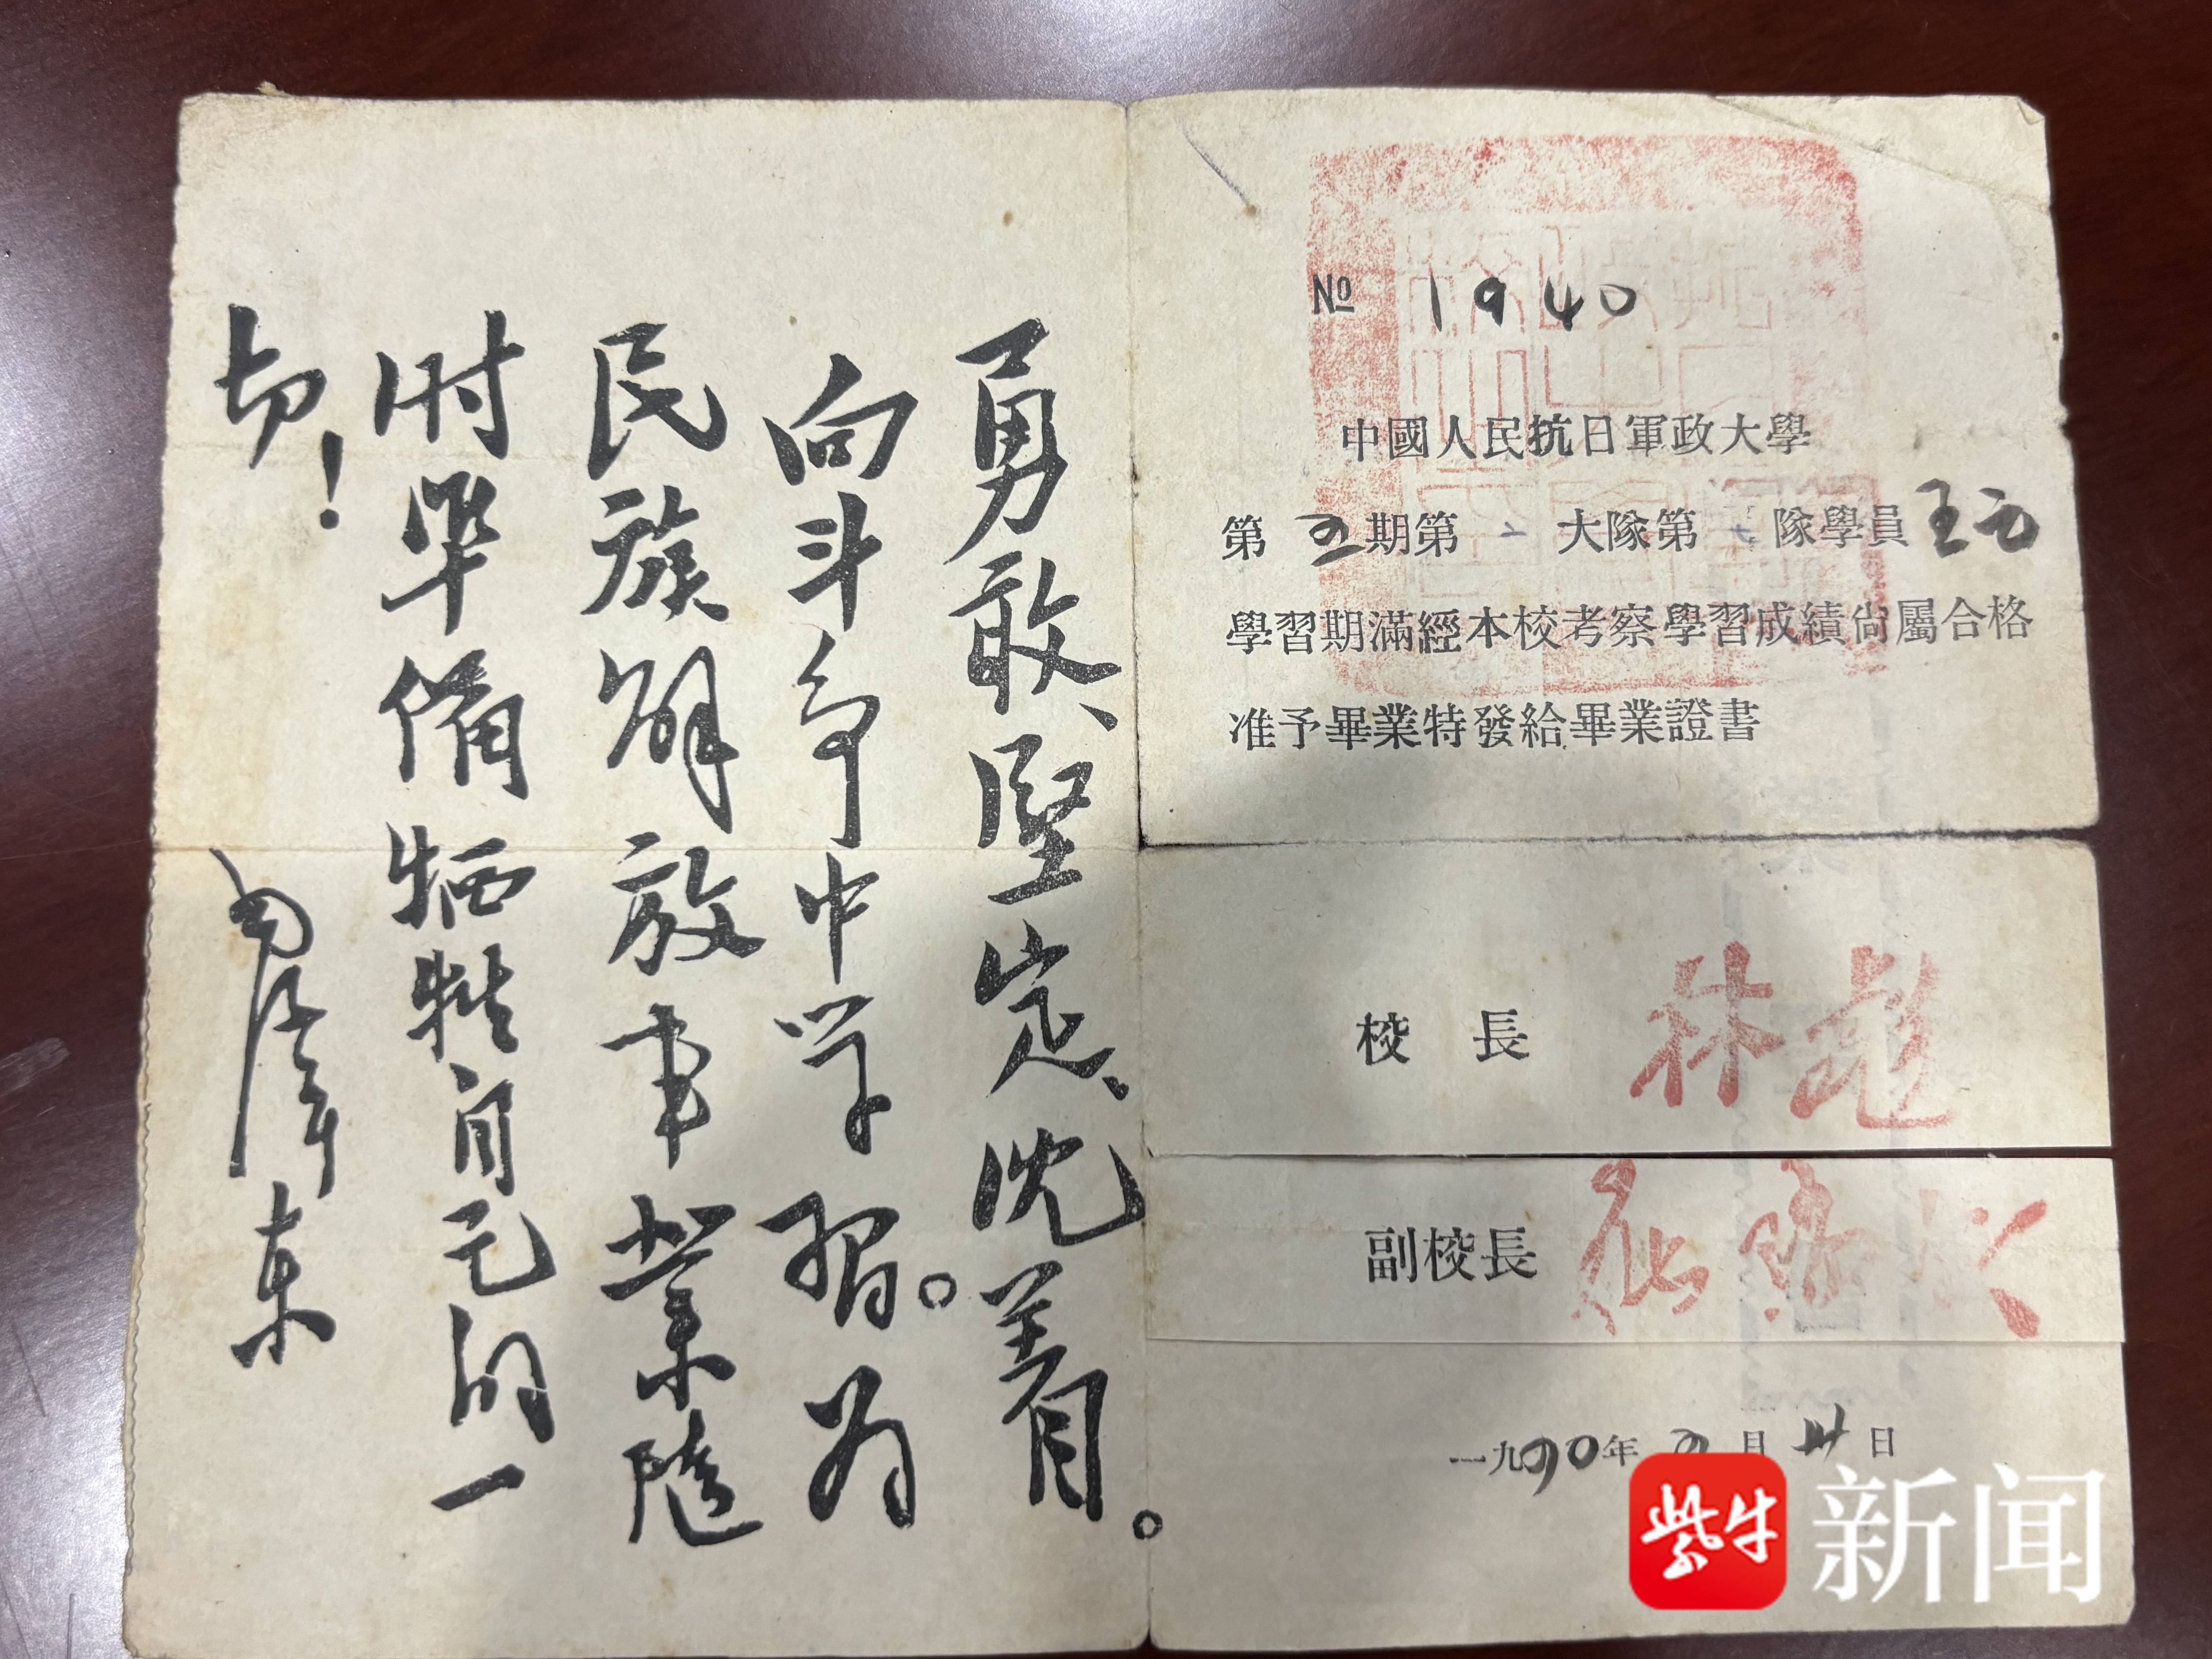 勇敢、堅定、沈着。
向斗争中学習。为
民族解放事業随
时準備牺牲自己的一
切！
毛澤東
№ 1940
中國人民抗日軍政大學
第五期第二大隊第七隊學員王元
學習期滿經本校考察學習成績尙屬合格
准予畢業特發給畢業證書
校長 林彪
副校長
一九四〇年 月卅日
紫牛新闻